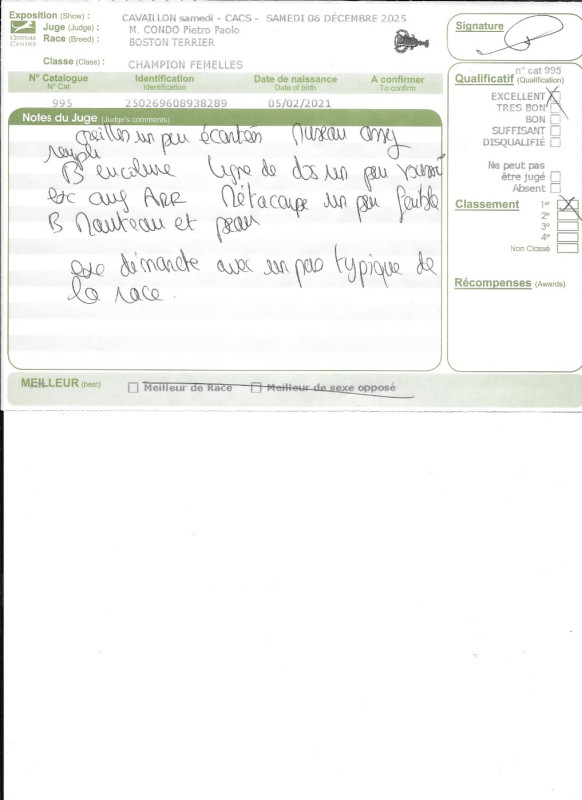 Exposition (Show) : CAVAILLON samedi - CACS - SAMEDI 06 DÉCEMBRE 2025
Juge (Judge) : M. CONDO Pietro Paolo
Race (Breed) : BOSTON TERRIER
CENTRALE CANINE
Classe (Class) : CHAMPION FEMELLES
N° Catalogue Identification Date de naissance A confirmer
N° Cat Identification Date of birth To confirm
995 250269608938289 05/02/2021
Notes du Juge (Judge's comments)
oreilles un peu écartées Museau assez
rempli
B encolure ligne de dos un peu
exc ang ARR Métacarpe un peu faible
B Manteau et peau
exc démarche avec un pas typique de
la race.
MEILLEUR (best) Meilleur de Race Meilleur de sexe opposé
Signature
n° cat 995
Qualificatif (Qualification)
EXCELLENT
TRES BON
BON
SUFFISANT
DISQUALIFIÉ
Ne peut pas
être jugé
Absent
Classement 1er
2e
3e
4e
Non Classé
Récompenses (Awards)